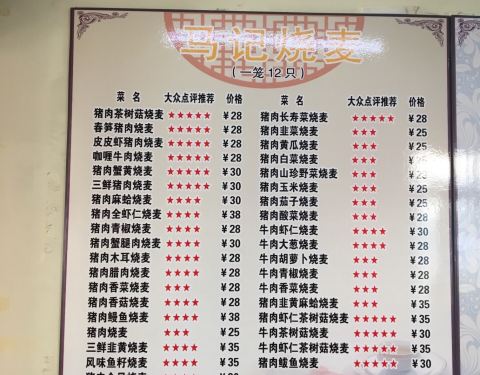 马记烧麦
(一笼12只)
菜 名 大众点评推荐 价格
猪肉茶树菇烧麦 ★★★★★ ¥28
春笋猪肉烧麦 ★★★★★ ¥28
皮皮虾猪肉烧麦 ★★★★★ ¥28
咖喱牛肉烧麦 ★★★★★ ¥30
猪肉蟹黄烧麦 ★★★★★ ¥30
三鲜猪肉烧麦 ★★★★★ ¥30
猪肉麻蛤烧麦 ★★★★ ¥30
猪肉全虾仁烧麦 ★★★★ ¥38
猪肉青椒烧麦 ★★★★ ¥28
猪肉蟹腿肉烧麦 ★★★★ ¥30
猪肉木耳烧麦 ★★★★ ¥28
猪肉腊肉烧麦 ★★★★ ¥28
猪肉香菜烧麦 ★★★ ¥28
猪肉香菇烧麦 ★★★★ ¥28
猪肉鳗鱼烧麦 ★★★★ ¥38
猪肉烧麦 ★★★ ¥25
三鲜韭黄烧麦 ★★★★ ¥35
风味鱼籽烧麦 ★★★★ ¥35
菜 名 大众点评推荐 价格
猪肉长寿菜烧麦 ★★★★★ ¥28
猪肉韭菜烧麦 ★★★ ¥25
猪肉黄瓜烧麦 ★★★ ¥25
猪肉白菜烧麦 ★★★ ¥25
猪肉山珍野菜烧麦 ★★★ ¥25
猪肉玉米烧麦 ★★★ ¥25
猪肉茄子烧麦 ★★★ ¥25
猪肉酸菜烧麦 ★★★ ¥28
牛肉虾仁烧麦 ★★★★ ¥30
牛肉大葱烧麦 ★★★★ ¥28
牛肉胡萝卜烧麦 ★★★ ¥28
牛肉青椒烧麦 ★★★ ¥28
牛肉香菜烧麦 ★★★ ¥28
猪肉韭黄麻蛤烧麦 ★★★ ¥35
猪肉虾仁茶树菇烧麦 ★★★★★ ¥35
牛肉茶树菇烧麦 ★★★★★ ¥30
牛肉虾仁烧麦 ★★★★★ ¥35
猪肉鲅鱼烧麦 ★★★★★ ¥30